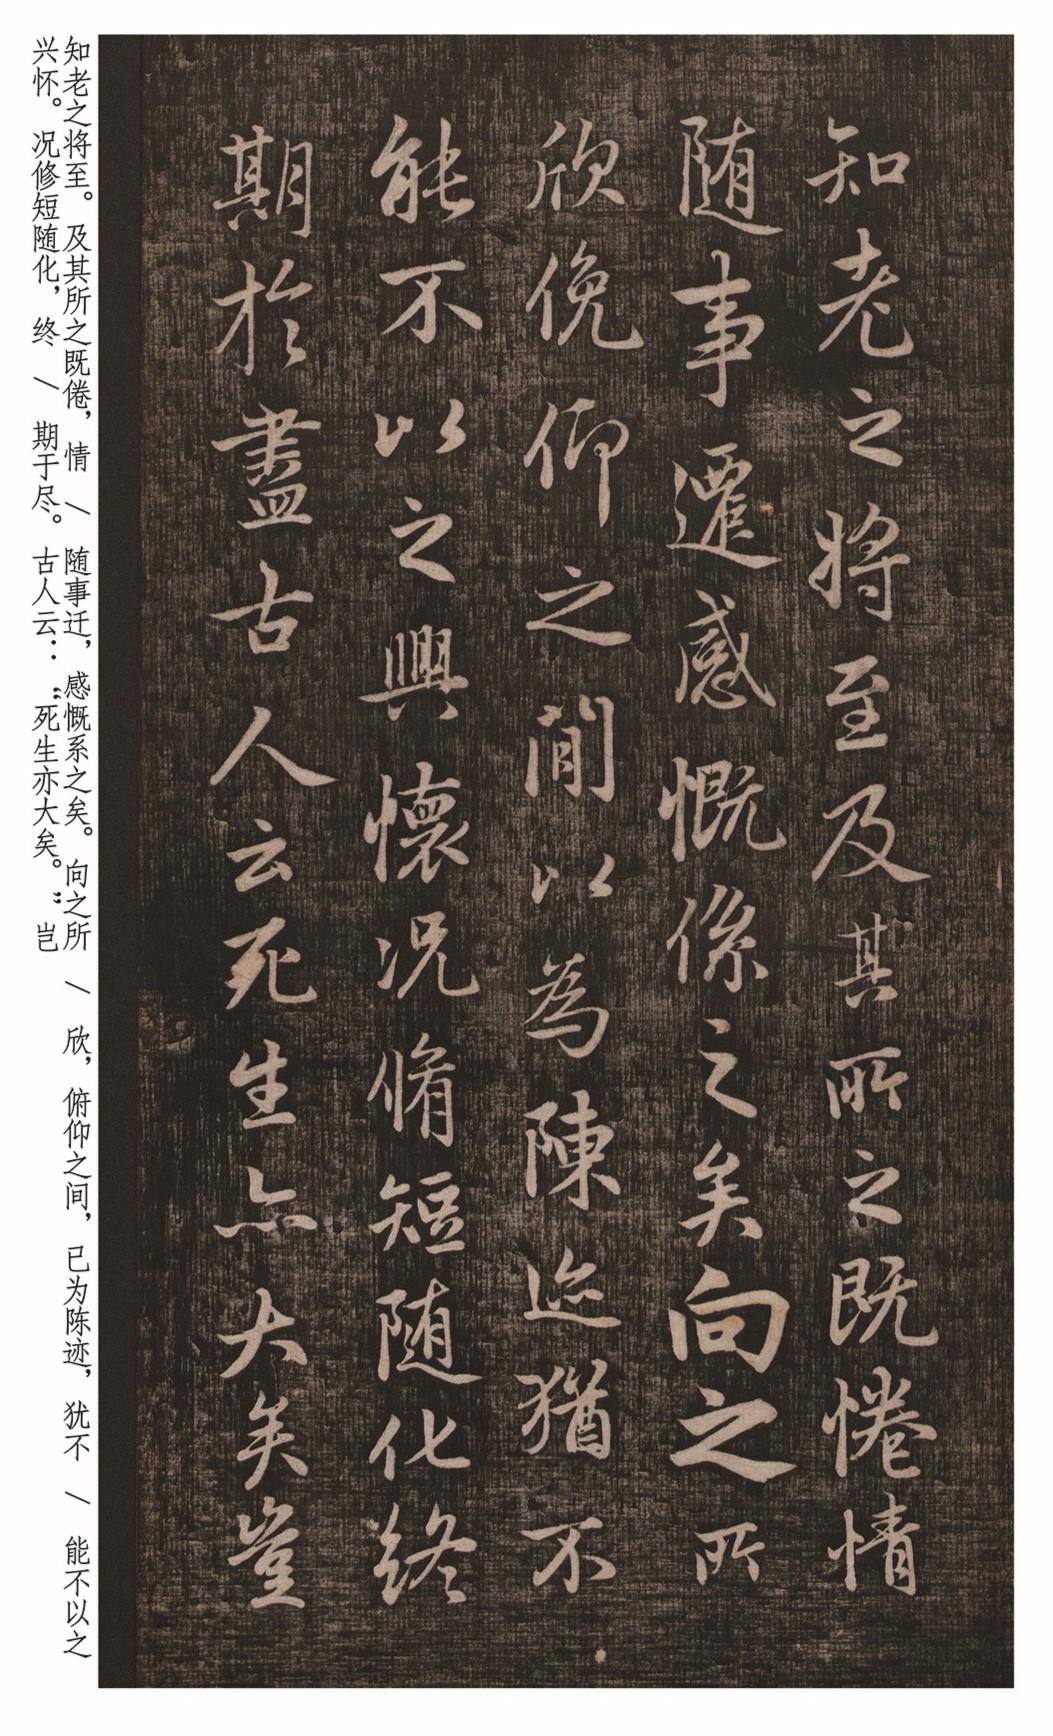 知老之将至及其所之既惓情
随事遷感慨係之矣向之所
欣俛仰之閒以為陳迹猶不
能不以之興懷况脩短随化終
期於盡古人云死生亦大矣豈
知老之将至。及其所之既倦，情 / 随事迁，感慨系之矣。向之所 / 欣，俯仰之间，已为陈迹，犹不 / 能不以之
兴怀。况修短随化，终 / 期于尽。古人云：“死生亦大矣。”岂